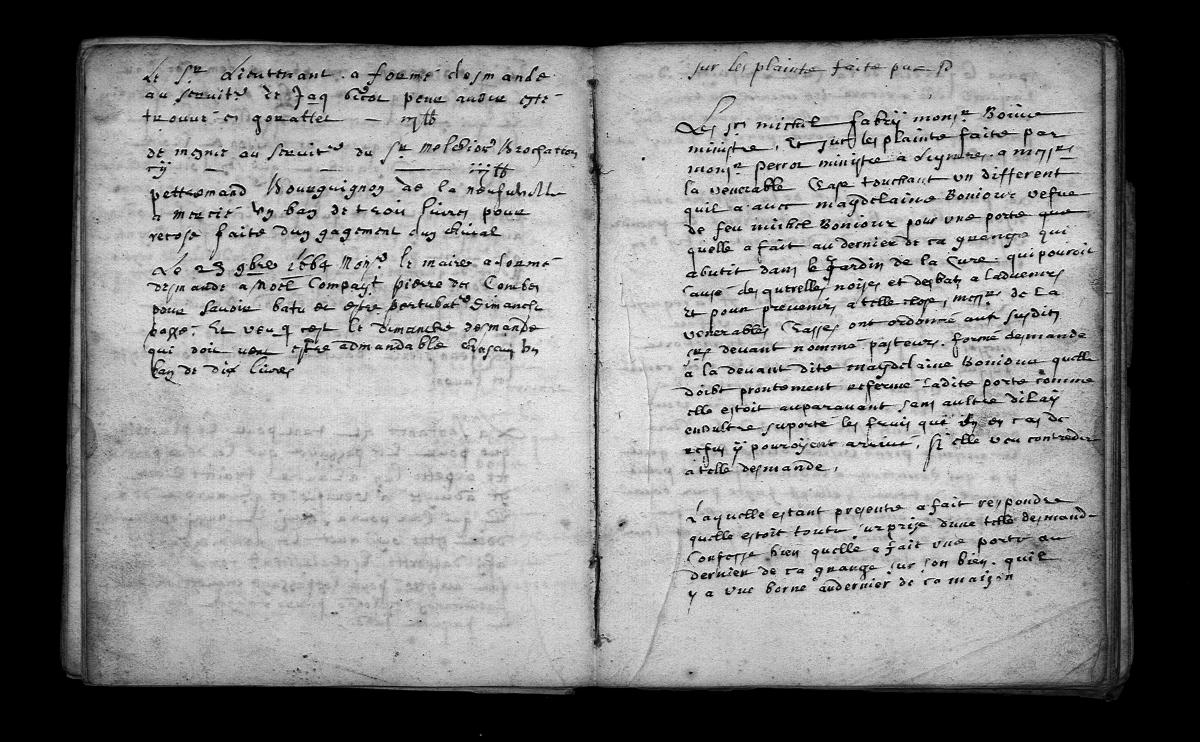 Le Sr Lieutenant a formé desmande
au servitr de Jaq pour avoir esté
trouvé
de mesme au servitr du Sr Melchior Brochatton
petremand Bourguignon de la neufville
a mercié un ban de trois livres pour
recose faite dun gagement dun chival
Le 23 9bre 1664 Monsr le maire a formé
desmande a Noël Compagt pierre des Combes
pour savoir batu et estre pertubatr Dimanche
passé. Et veu q cest le dimanche desmande
qui doit estre admandable chascun un
ban de dix livres
sur les plainte faite par P
Les srs michel fabry monsr Boive
ministre, Et sur les plainte faite par
monsr perrot ministre a a messrs
la venerable Classe touchant un different
quil a avec maydelaine Bonjour vefve
de feu michel Bonjour pour une porte que
quelle a fait au dernier de ca grange qui
abutit dans le Jardin de la Cure qui pouroit
causé des querelles noises et desbats a ladvenir
Et pour prevenir a telle chose, messrs de La
venerables Classes ont ordonné aux susdits
srs devant nommé pasteurs. formé desmande
a la devant dite maydelaine Bonjour quelle
doibt prontement refermé ladite porte comme
elle estoit auparavant sans aultre dilay
enoultre suporté les frais qui en cas de
refus y pouroyent arrivé, si elle veu contredir
a telle desmande,
Laquelle estant presente a fait respondre
quelle estoit toute surprise dune telle desmande
Confesse bien quelle a fait une porte au
dernier de ca grange sur son bien. quil
y a une borne audernier de ca maison